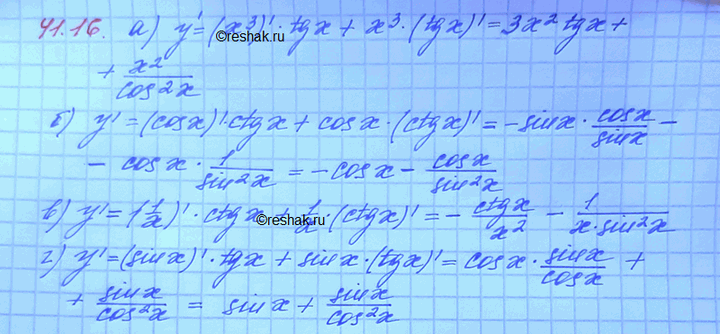 41.16. а) y' = (x³)' · tgx + x³ · (tgx)' = 3x² tgx +
+ x²/cos²x
б) y' = (cosx)' · ctgx + cosx · (ctgx)' = -sinx · cosx/sinx -
- cosx · 1/sin²x = -cosx - cosx/sin²x
в) y' = (1/x)' · ctgx + 1/x · (ctgx)' = - ctgx/x² - 1/(x · sin²x)
г) y' = (sinx)' · tgx + sinx · (tgx)' = cosx · sinx/cosx +
+ sinx/cos²x = sinx + sinx/cos²x
©reshak.ru
©reshak.ru